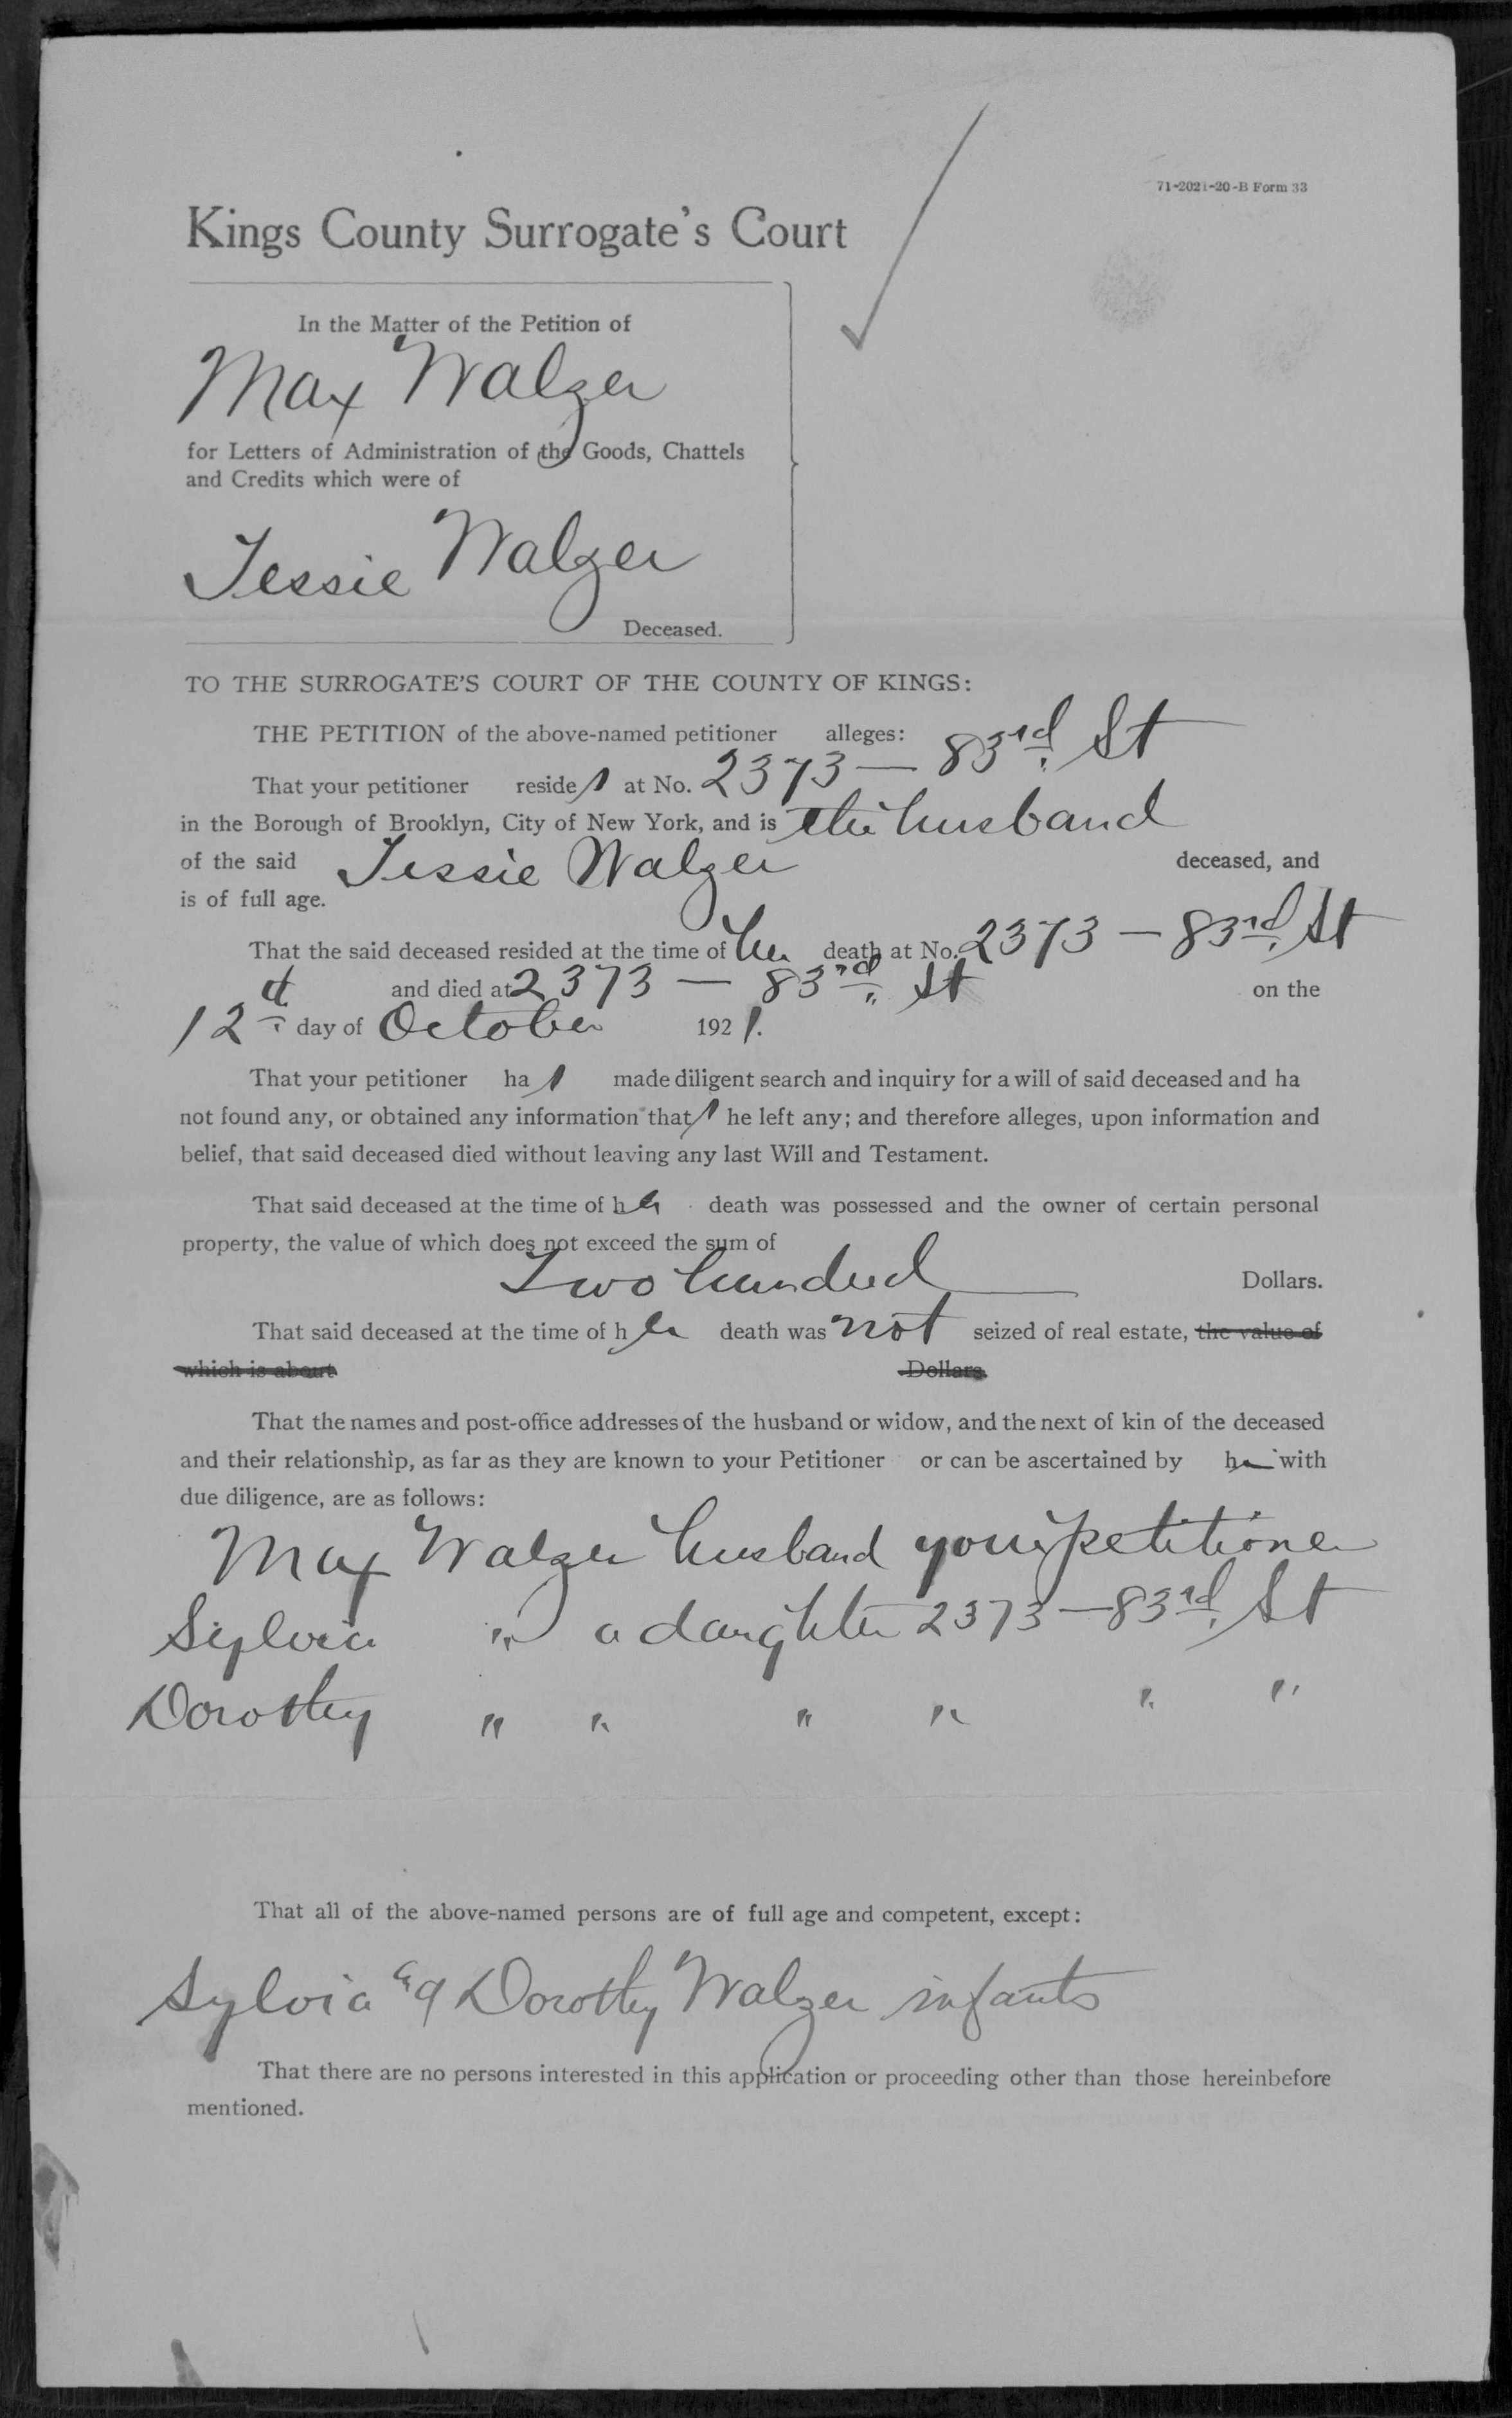 71-2021-20-B Form 33
Kings County Surrogate's Court
In the Matter of the Petition of
Max Walzer
for Letters of Administration of the Goods, Chattels
and Credits which were of
Jessie Walzer
Deceased.
TO THE SURROGATE'S COURT OF THE COUNTY OF KINGS:
THE PETITION of the above-named petitioner alleges:
That your petitioner resides at No. 2373 — 83rd. St
in the Borough of Brooklyn, City of New York, and is the husband
of the said Jessie Walzer deceased, and
is of full age.
That the said deceased resided at the time of her death at No. 2373 — 83rd. St
and died at 2373 — 83rd. St on the
12th day of October 1921.
That your petitioner has made diligent search and inquiry for a will of said deceased and ha
not found any, or obtained any information that she left any; and therefore alleges, upon information and
belief, that said deceased died without leaving any last Will and Testament.
That said deceased at the time of her death was possessed and the owner of certain personal
property, the value of which does not exceed the sum of
Two hundred Dollars.
That said deceased at the time of her death was not seized of real estate, the value of
which is about Dollars
That the names and post-office addresses of the husband or widow, and the next of kin of the deceased
and their relationship, as far as they are known to your Petitioner or can be ascertained by h with
due diligence, are as follows:
Max Walzer husband your petitioner
Sylvia " a daughter 2373 — 83rd. St
Dorothy " " " " " "
That all of the above-named persons are of full age and competent, except:
Sylvia & Dorothy Walzer infants
That there are no persons interested in this application or proceeding other than those hereinbefore
mentioned.